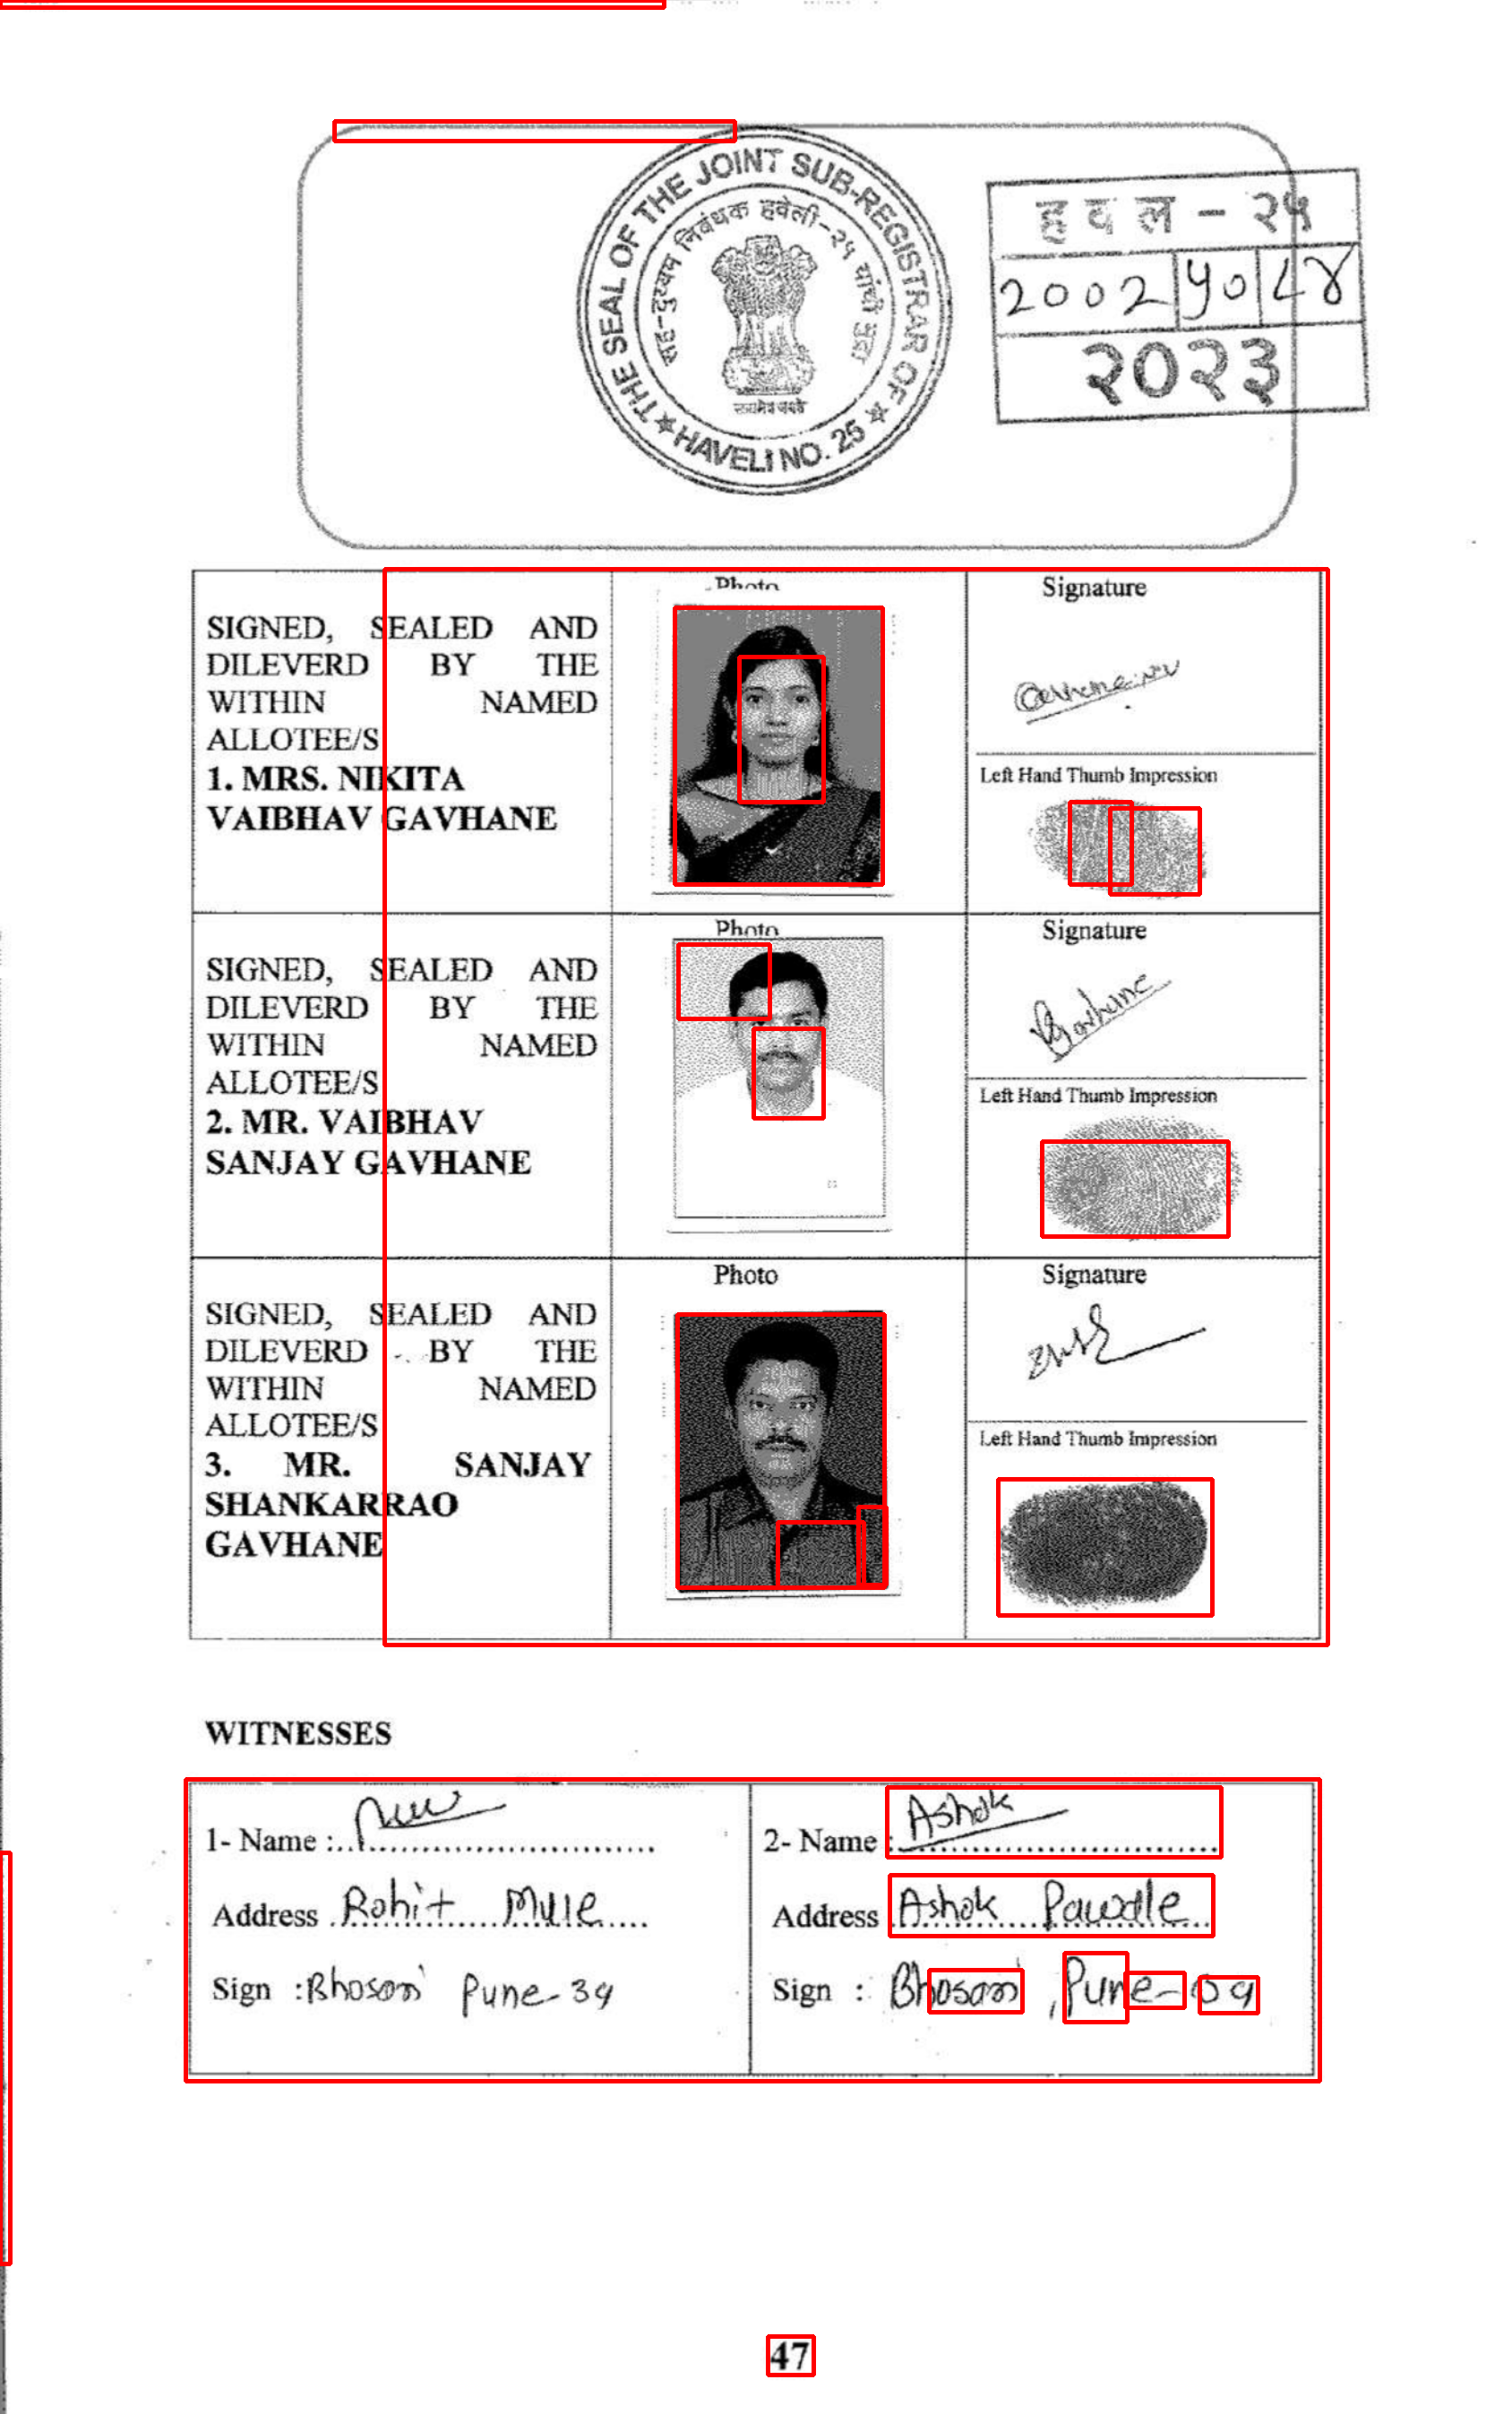 THE SEAL OF THE JOINT SUB-REGISTRAR OF
★ HAVELI NO. 25 ★
सह-दुय्यम निबंधक हवेली-२५ यांची मुद्रा
सत्यमेव जयते
हवल - २५
2002 50 L8
२०२३
SIGNED, SEALED AND
DILEVERD BY THE
WITHIN NAMED
ALLOTEE/S
1. MRS. NIKITA
VAIBHAV GAVHANE
Photo
Signature
Left Hand Thumb Impression
SIGNED, SEALED AND
DILEVERD BY THE
WITHIN NAMED
ALLOTEE/S
2. MR. VAIBHAV
SANJAY GAVHANE
Photo
Signature
Left Hand Thumb Impression
SIGNED, SEALED AND
DILEVERD BY THE
WITHIN NAMED
ALLOTEE/S
3. MR. SANJAY
SHANKARRAO
GAVHANE
Photo
Signature
Left Hand Thumb Impression
WITNESSES
1- Name :
Address Rohit Mule
Sign : Bhosari Pune-39
2- Name : Ashok
Address Ashok
Sign : Bhosari, Pune-39
47